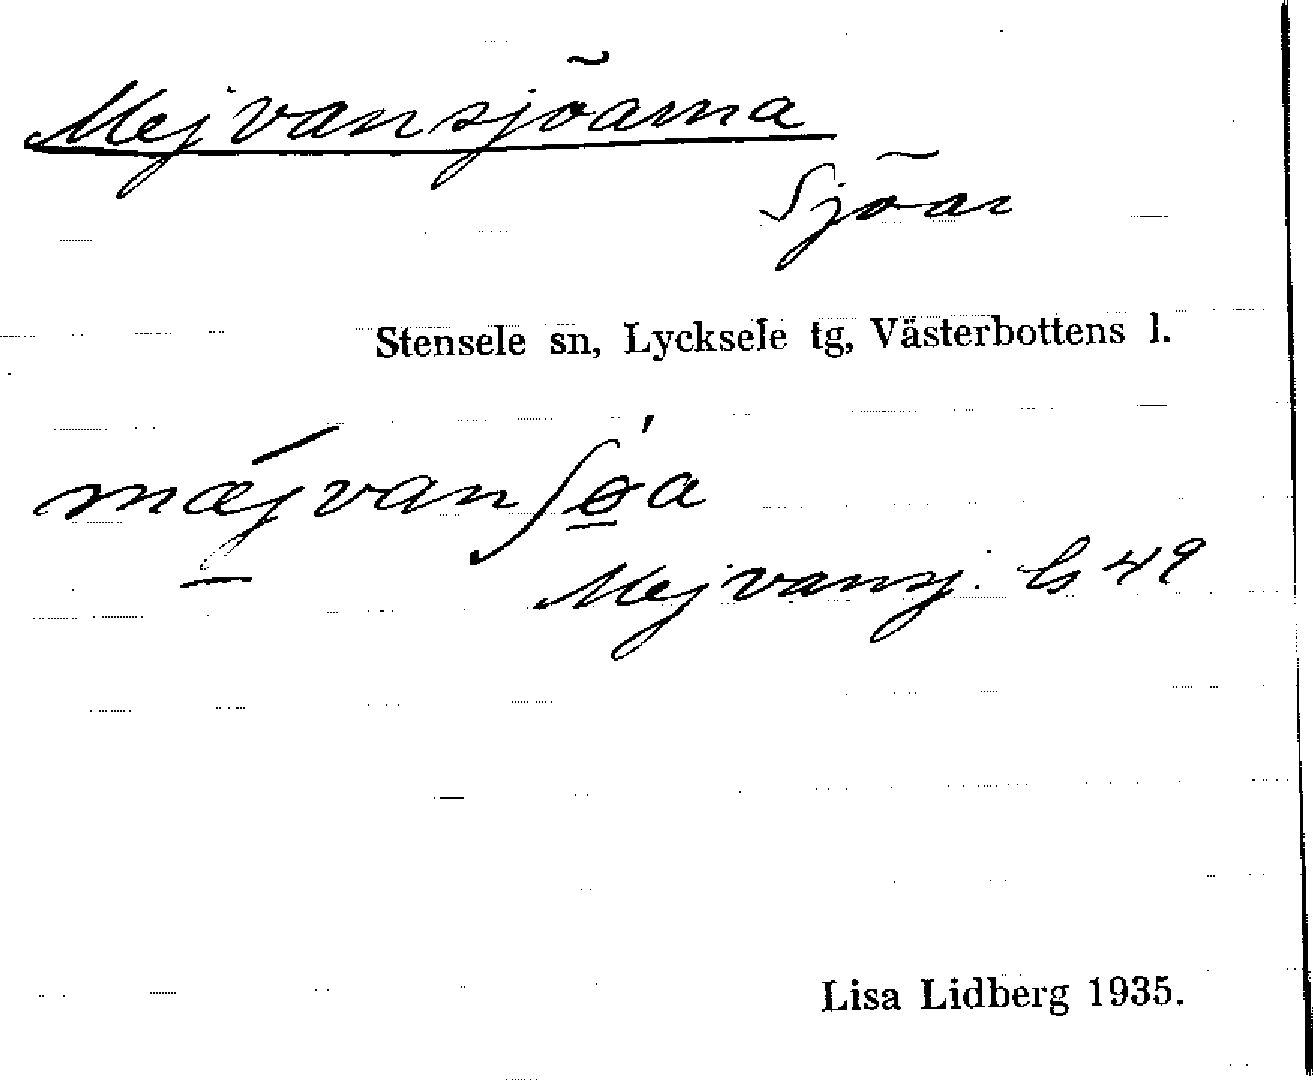 Mejvansjöarna
Sjöar
Stensele sn, Lycksele tg, Västerbottens l.
mæjvanʃøa
Mejvansj. G 49
Lisa Lidberg 1935.